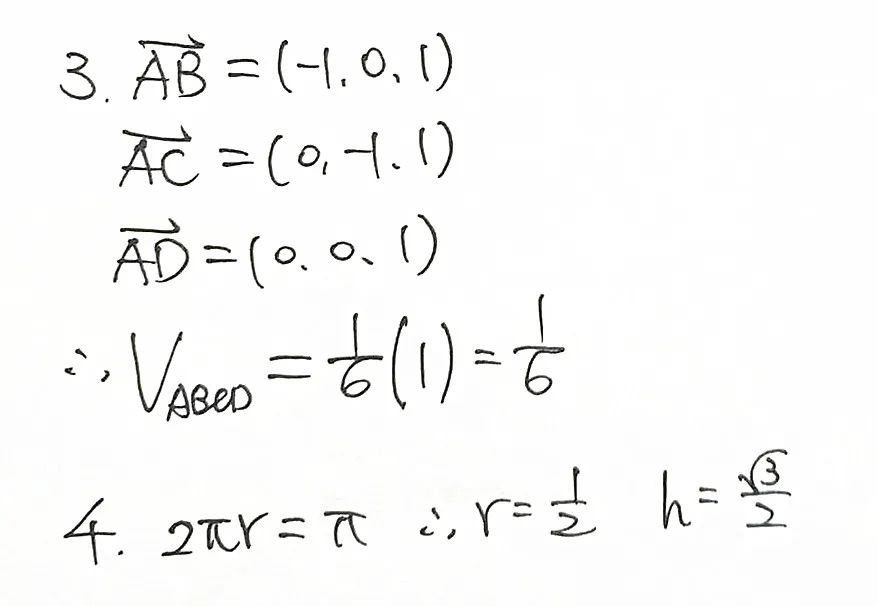 3. $\overrightarrow{AB} = (-1, 0, 1)$
$\overrightarrow{AC} = (0, -1, 1)$
$\overrightarrow{AD} = (0, 0, 1)$
$\therefore, V_{ABCD} = \frac{1}{6}(1) = \frac{1}{6}$
4. $2\pi r = \pi$ $\therefore, r = \frac{1}{2}$ $h = \frac{\sqrt{3}}{2}$